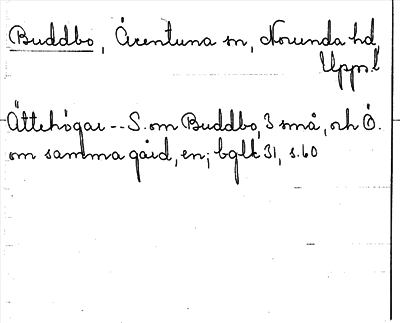 Buddbo, Årentuna sn, Norunda hd,
Upps.l
Ättehögar -- S. om Buddbo, 3 små, och Ö.
om samma gård, en; bglt 31, s.60